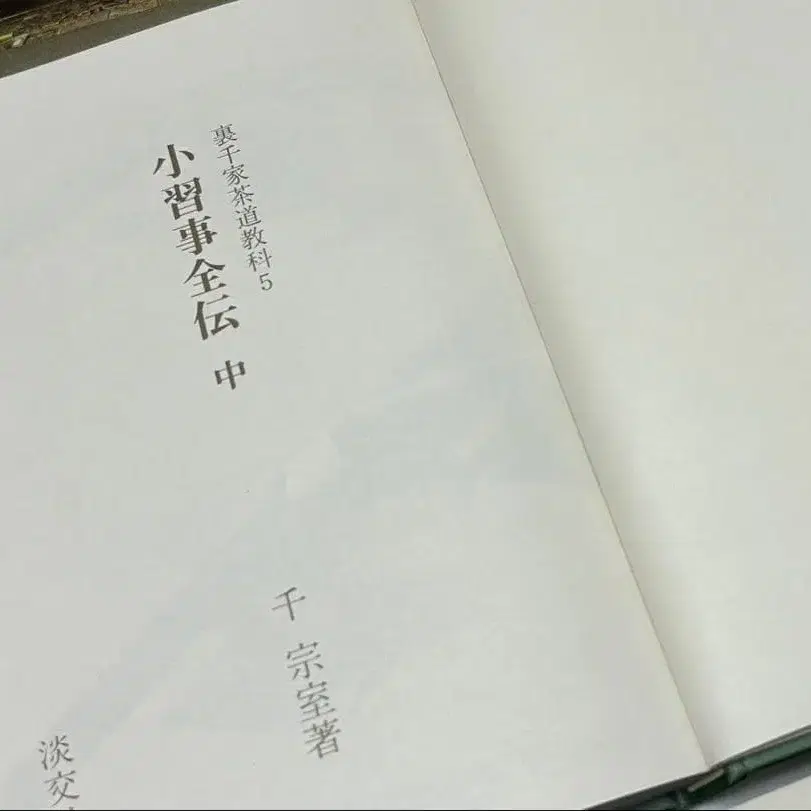 裏千家茶道教科5
小習事全伝 中
千 宗室著
淡交